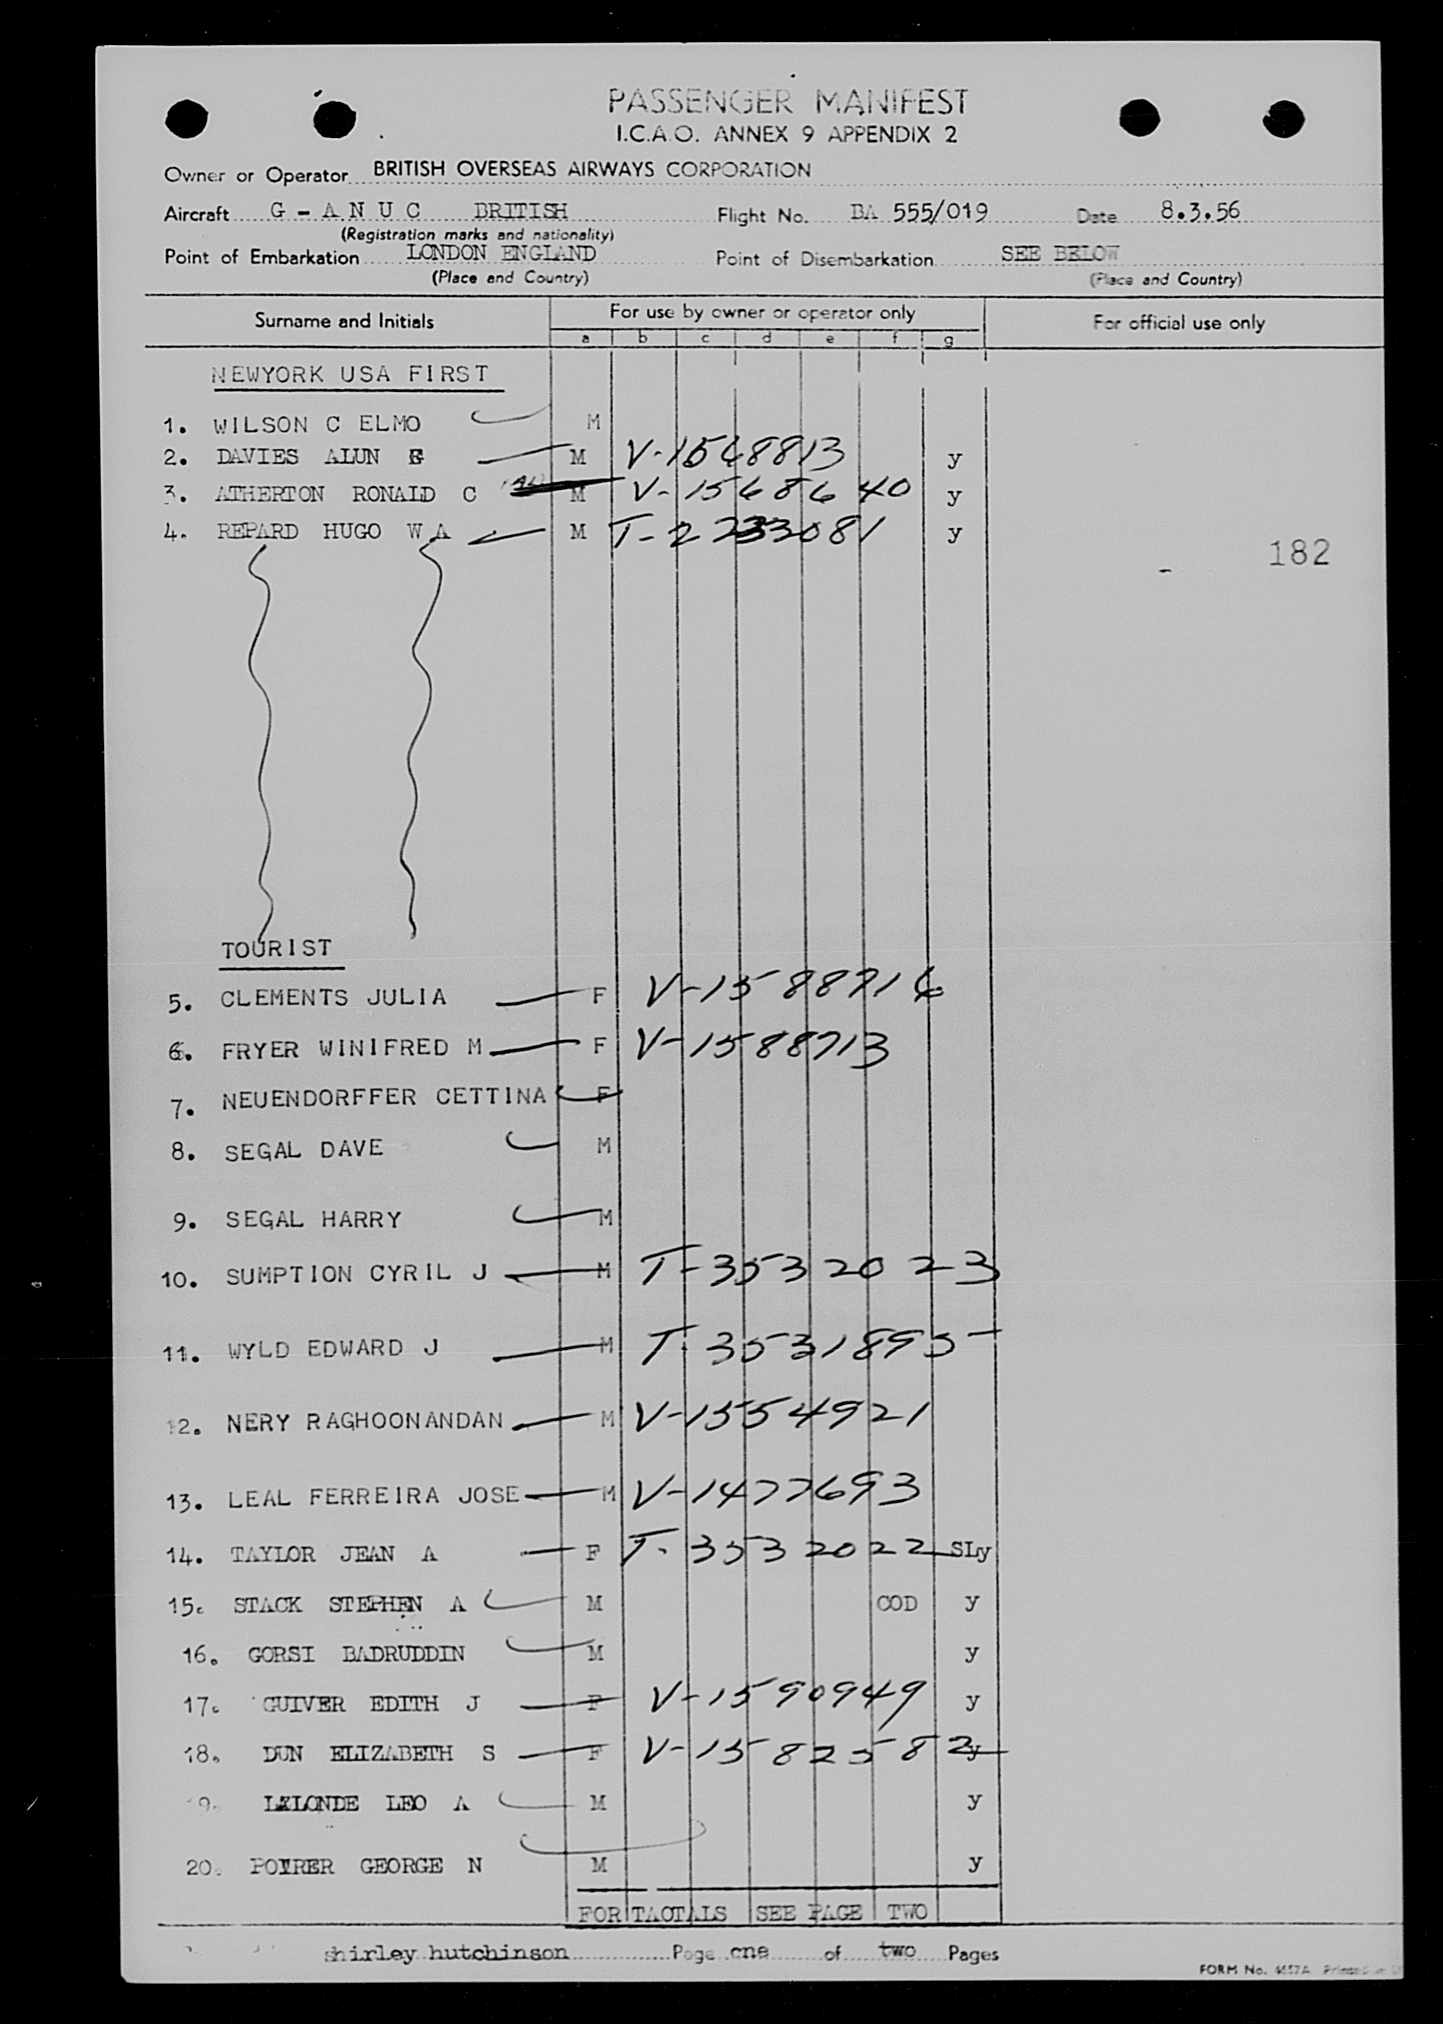 PASSENGER MANIFEST
I.C.A.O. ANNEX 9 APPENDIX 2
Owner or Operator BRITISH OVERSEAS AIRWAYS CORPORATION
Aircraft G - A N U C BRITISH Flight No. BA 555/019 Date 8.3.56
(Registration marks and nationality)
Point of Embarkation LONDON ENGLAND Point of Disembarkation SEE BELOW
(Place and Country) (Place and Country)
Surname and Initials For use by owner or operator only For official use only
a b c d e f g
NEWYORK USA FIRST
1. WILSON C ELMO M
2. DAVIES ALUN M V-1568813 y
3. ATHERTON RONALD C M V-1568640 y
4. REPARD HUGO W A M T-2233081 y
182
TOURIST
5. CLEMENTS JULIA F V-1588716
6. FRYER WINIFRED M F V-1588713
7. NEUENDORFFER CETTINA F
8. SEGAL DAVE M
9. SEGAL HARRY M
10. SUMPTION CYRIL J M T-3532023
11. WYLD EDWARD J M T-3531895
12. NERY RAGHOONANDAN M V-1554921
13. LEAL FERREIRA JOSE M V-1477693
14. TAYLOR JEAN A F T-3532022 SLy
15. STACK STEPHEN A M COD y
16. GORSI BADRUDDIN M y
17. GUIVER EDITH J F V-1590949 y
18. DUN ELIZABETH S F V-1582582 y
19. LALONDE LEO A M y
20. POIRER GEORGE N M y
FOR TAOTALS SEE PAGE TWO
shirley hutchinson Page one of two Pages
FORM No. 4457A